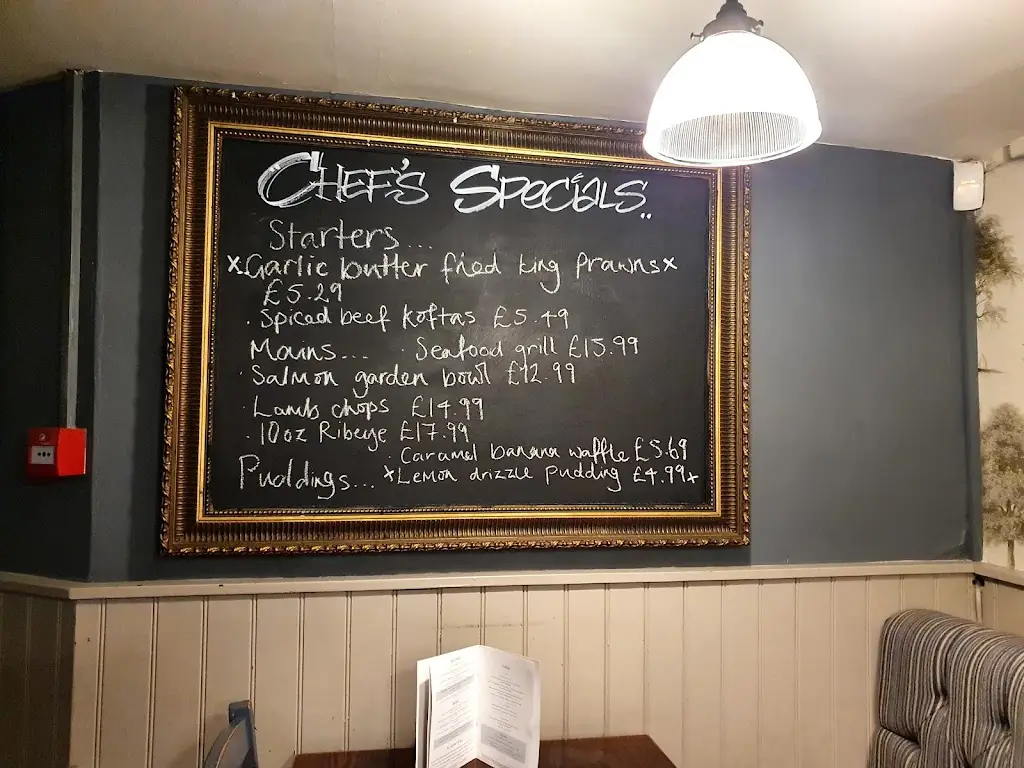 CHEF'S SPECIALS..
Starters...
x Garlic butter fried king Prawns x
£5.29
. Spiced beef koftas £5.49
Mains... . Seafood grill £15.99
. Salmon garden bowl £12.99
. Lamb chops £14.99
. 10oz Ribeye £17.99
. Caramel banana waffle £5.69
Puddings... x Lemon drizzle pudding £4.99 x